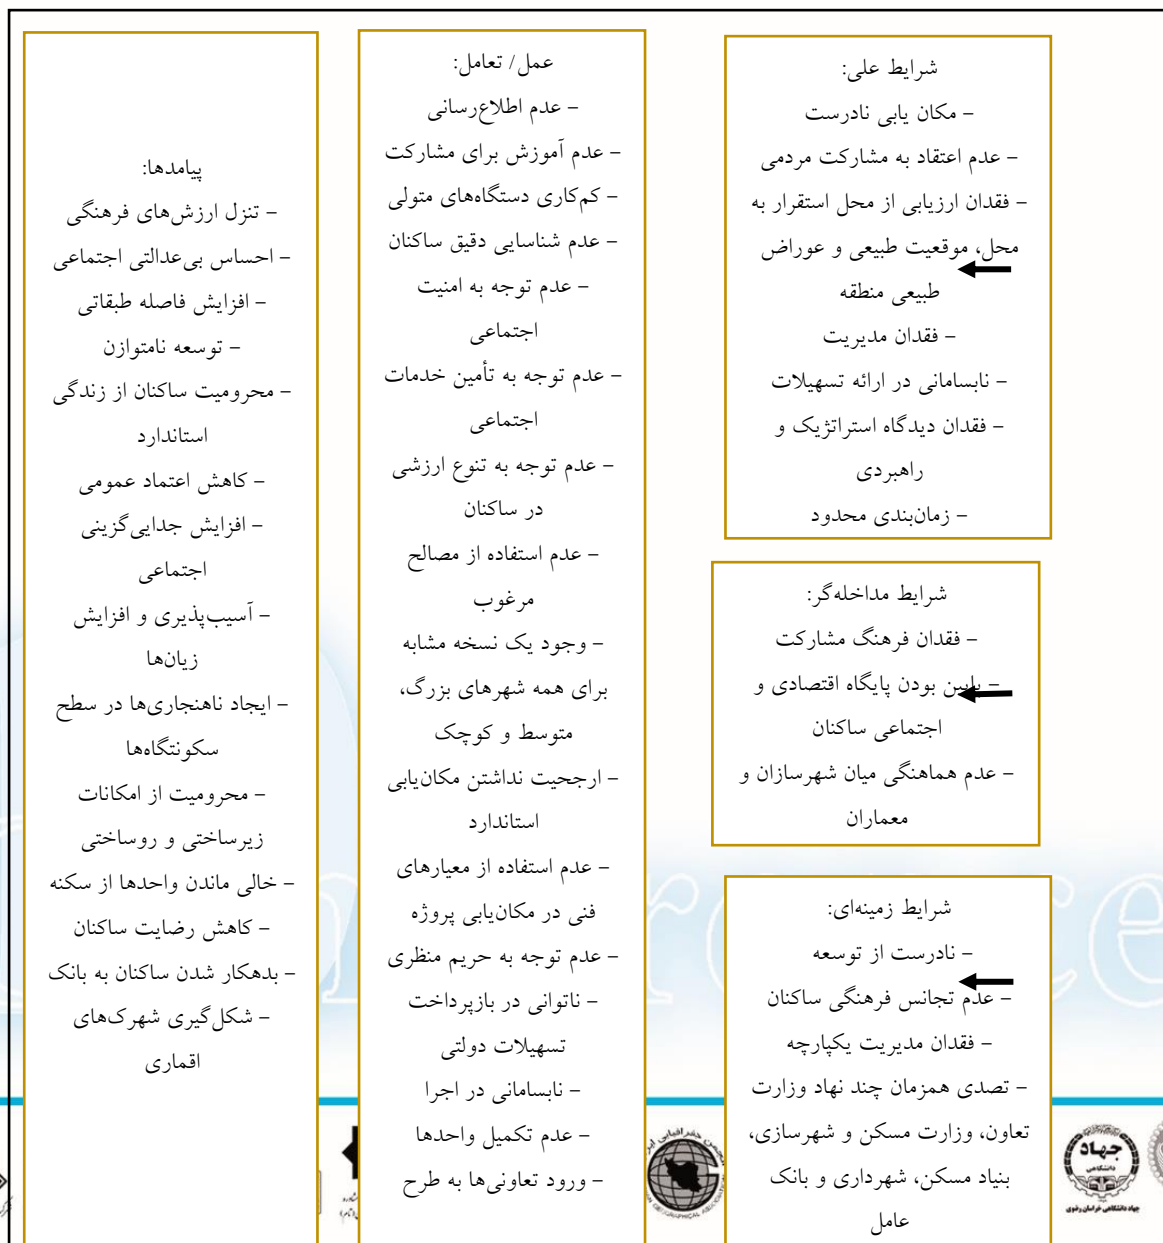 شرایط علی:
- مکان یابی نادرست
- عدم اعتقاد به مشارکت مردمی
- فقدان ارزیابی از محل استقرار به
محل، موقعیت طبیعی و عوراض
طبیعی منطقه
- فقدان مدیریت
- نابسامانی در ارائه تسهیلات
- فقدان دیدگاه استراتژیک و
راهبردی
- زمان‌بندی محدود
شرایط مداخله‌گر:
- فقدان فرهنگ مشارکت
- پایین بودن پایگاه اقتصادی و
اجتماعی ساکنان
- عدم هماهنگی میان شهرسازان و
معماران
شرایط زمینه‌ای:
- نادرست از توسعه
- عدم تجانس فرهنگی ساکنان
- فقدان مدیریت یکپارچه
- تصدی همزمان چند نهاد وزارت
تعاون، وزارت مسکن و شهرسازی،
بنیاد مسکن، شهرداری و بانک
عامل
عمل/ تعامل:
- عدم اطلاع‌رسانی
- عدم آموزش برای مشارکت
- کم‌کاری دستگاه‌های متولی
- عدم شناسایی دقیق ساکنان
- عدم توجه به امنیت
اجتماعی
- عدم توجه به تأمین خدمات
اجتماعی
- عدم توجه به تنوع ارزشی
در ساکنان
- عدم استفاده از مصالح
مرغوب
- وجود یک نسخه مشابه
برای همه شهرهای بزرگ،
متوسط و کوچک
- ارجحیت نداشتن مکان‌یابی
استاندارد
- عدم استفاده از معیارهای
فنی در مکان‌یابی پروژه
- عدم توجه به حریم منظری
- ناتوانی در بازپرداخت
تسهیلات دولتی
- نابسامانی در اجرا
- عدم تکمیل واحدها
- ورود تعاونی‌ها به طرح
پیامدها:
- تنزل ارزش‌های فرهنگی
- احساس بی‌عدالتی اجتماعی
- افزایش فاصله طبقاتی
- توسعه نامتوازن
- محرومیت ساکنان از زندگی
استاندارد
- کاهش اعتماد عمومی
- افزایش جدایی‌گزینی
اجتماعی
- آسیب‌پذیری و افزایش
زیان‌ها
- ایجاد ناهنجاری‌ها در سطح
سکونتگاه‌ها
- محرومیت از امکانات
زیرساختی و روساختی
- خالی ماندن واحدها از سکنه
- کاهش رضایت ساکنان
- بدهکار شدن ساکنان به بانک
- شکل‌گیری شهرک‌های
اقماری
جهاد
دانشگاهی
جهاد دانشگاهی خراسان رضوی